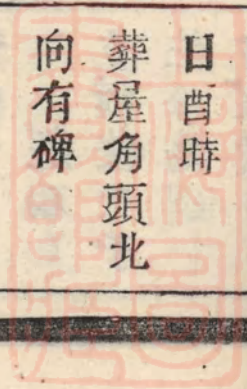 日酉時
葬屋角頭北
向有碑